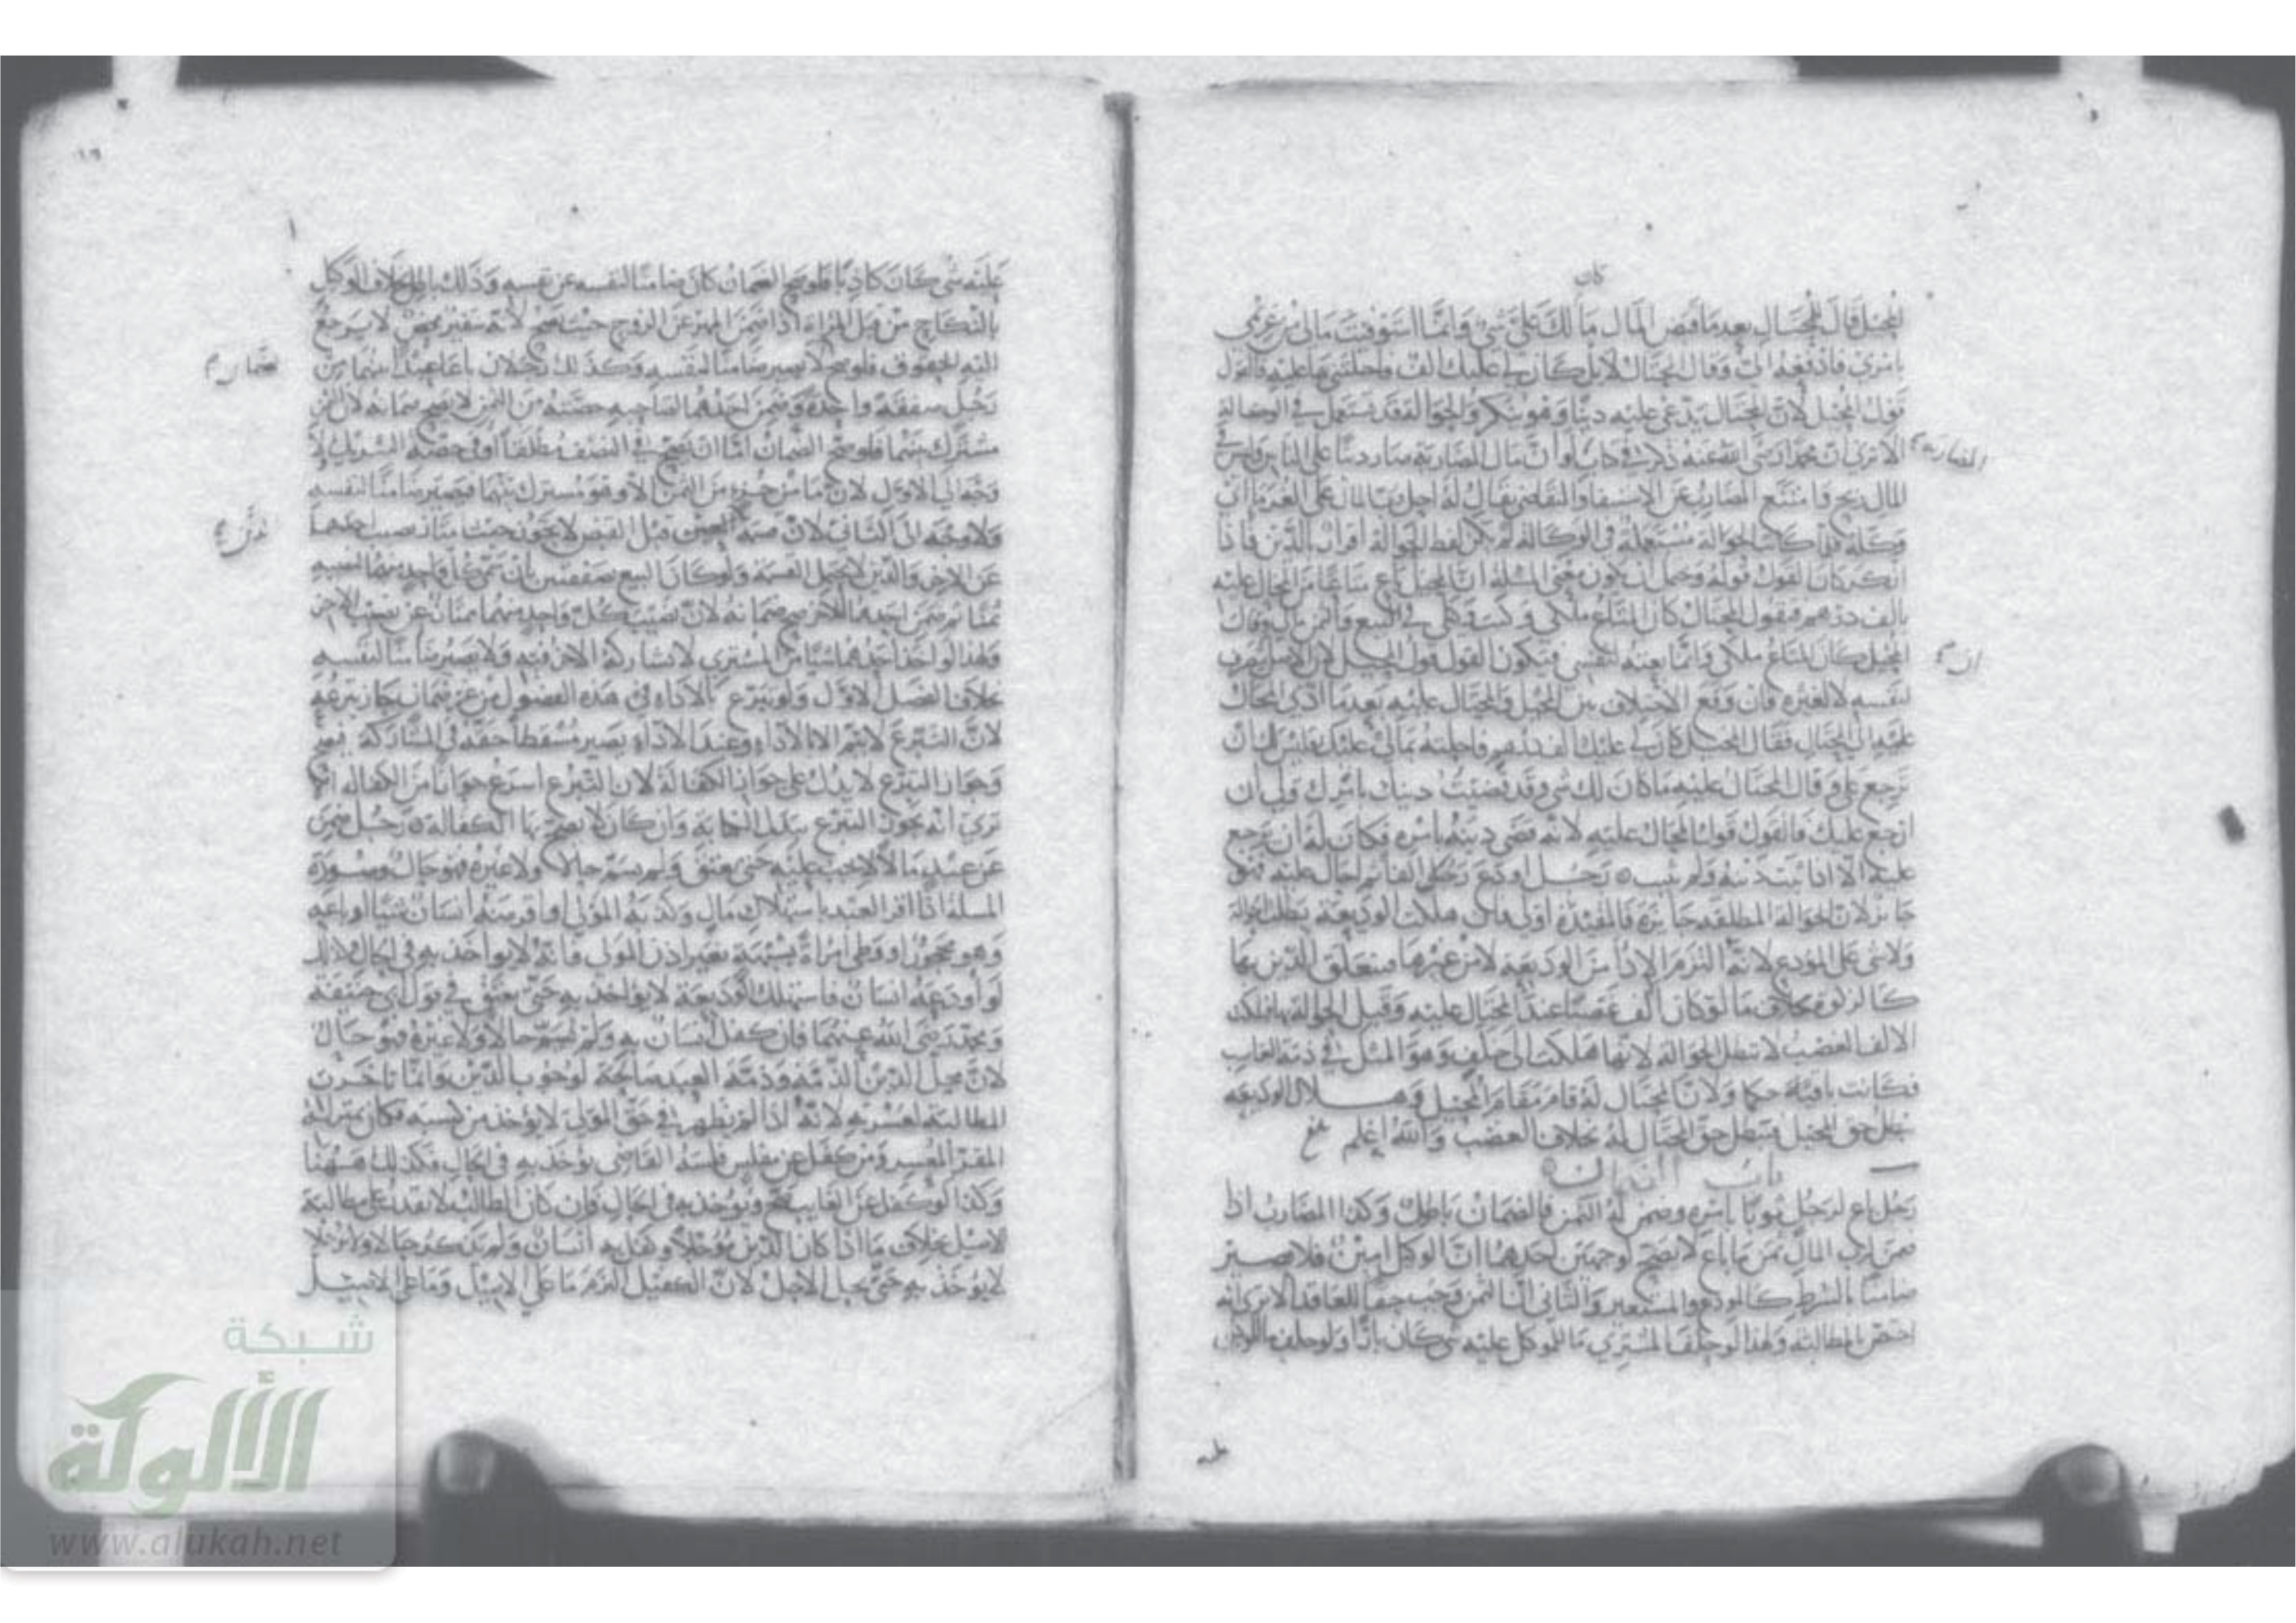 كان
المحيل قال للمحتال بعدما قبض المال ما لك علي شي وانما استوفيت مالي من غريمي
بامري فادفعه الي وقال المحتال لا بل كان لي عليك الف فاحلتني بها عليه فالقول
قول المحيل لان المحتال يدعي عليه دينا وهو ينكر والحوالة قد تستعمل في الوكالة
الا ترى ان محمدا رضي الله عنه ذكر في كتاب لو ان مال المضاربة صار دينا على الناس وليس في
المضاربة
المال ربح وامتنع المضارب عن الاستيفاء والتقاضي يقال له احل رب المال على الغرماء اي
وكله فلما كانت الحوالة مستعملة في الوكالة لم يكن لفظ الحوالة اقرارا بالدين فاذا
انكر كان القول قوله وحمل ان يكون معنى المسلة ان المحيل باع متاعا من المحال عليه
بالف درهم فيقول المحتال كان المتاع ملكي وكنت وكيلي في البيع والثمن لي وقال
المحيل كان المتاع ملكي وانما بعته لنفسي فيكون القول قول المحيل لان الاصل
ان
لنفسه لا لغيره فان وقع الاختلاف بين المحيل والمحتال عليه بعدما ادى المحال
عليه الى المحتال فقال المحيل كان لي عليك الف درهم فاحلته بمالي عليك فليس لك ان
ترجع علي وقال المحتال عليه ما كان لك شي وقد قضيت دينك بامرك ولي ان
ارجع عليك فالقول قول المحتال عليه لانه قضى دينه بامره فكان له ان يرجع
عليه الا اذا ثبت دينه ولم يثبت رجل اودع رجلا الفا ثم احال عليه فهو
جائز لان الحوالة المطلقة جائزة فالمقيدة اولى فان هلكت الوديعة بطلت الحوالة
ولا شي على المودع لانه ما التزم الا الاداء من الوديعة لا من غيرها فيتعلق الدين بها
كالزكوة بخلاف ما لو كان الف غصبا عند المحتال عليه وقبل الحوالة بها فهلكت
الالف الغصب لا تبطل الحوالة لانها هلكت الى خلف وهو المثل في ذمة الغاصب
فكانت باقية حكما ولان المحتال له قام مقام المحيل وهلاك الوديعة
يبطل حق المحيل فيبطل حق المحتال له بخلاف الغصب والله اعلم
باب الضمان
رجل باع لرجل ثوبا بامره وضمن له الثمن فالضمان باطل وكذا المضارب اذا
ضمن لرب المال ثمن ما باع لا يصح لوجهين احدهما ان الوكيل امين فلا يصير
ضامنا بالشرط كالمودع والمستعير والثاني ان الثمن وجب حقا للعاقد الا ترى انه
اختص بالمطالبة ولهذا لو حلف المشتري ما للموكل عليه شي كان بارا ولو حلف ما للوكيل
عليه شي كان كاذبا فلو صح الضمان كان ضامنا لنفسه عن نفسه وذلك باطل بخلاف الوكيل
بالنكاح من قبل المراة اذا ضمن المهر عن الزوج حيث يصح لانه سفير محض لا يرجع
اليه الحقوق فلو صح لا يصير ضامنا لنفسه وكذلك رجلان باعا عبدا بينهما من
رجل صفقة واحدة وضمن احدهما لصاحبه حصته من الثمن لا يصح ضمانه لان الثمن
مشترك بينهما فلو صح الضمان اما ان يصح في النصف مطلقا او في حصة الشريك لا
وجه الى الاول لان ما من جزء من الثمن الا وهو مشترك بينهما فيصير ضامنا لنفسه
ولا وجه الى الثاني لان قسمة الدين قبل القبض لا يجوز حيث يمتاز نصيب احدهما
عن الاخر والدين لا يحتمل القسمة ولو كان البيع صفقتين بان سمى كل واحد منهما لنصيبه
ثمنا ثم ضمن احدهما للاخر صح ضمانه لان نصيب كل واحد منهما ممتاز عن نصيب الاخر
ولهذا لو اخذ احدهما شيا من المشتري لا يشاركه الاخر فيه ولا يصير ضامنا لنفسه
بخلاف الفصل الاول ولو تبرع بالاداء في هذه الفصول من غير ضمان جاز تبرعه
لان التبرع لا يتم الا بالاداء وعند الاداء يصير مسقطا حقه في المشاركة فيصح
وجواز التبرع لا يدل على جواز الكفالة لان التبرع اسرع جوازا من الكفالة الا
ترى انه يجوز التبرع ببدل الكتابة وان كان لا يصح بها الكفالة رجل ضمن
عن عبد مالا لا يجب عليه حتى يعتق ولم يسم حالا ولا غيره فهو حال وصورة
المسلة اذا اقر العبد باستهلاك مال وكذبه المولى او اقرضه انسان شيا او باعه
وهو محجور او وطى امراة بشبهة بغير اذن المولى فانه لا يواخذ به في الحال وكذلك
لو اودعه انسان فاستهلك الوديعة لا يواخذ به حتى يعتق في قول ابي حنيفة
ومحمد رضي الله عنهما فان كفل انسان به ولم يسم حالا ولا غيره فهو حال
لان محل الدين الذمة وذمة العبد صالحة لوجوب الدين وانما تاخرت
المطالبة لعسرته لانه اذا لم يظهر في حق المولى لا يوخذ من كسبه فكان بمنزلة
المقر المعسر ومن كفل عن مفلس فلسه القاضي يوخذ به في الحال فكذلك ههنا
وكذا لو كفل عن الغايب صح ويوخذ به في الحال وان كان الطالب لا يقدر على مطالبة
الاصيل بخلاف ما اذا كان الدين موجلا وكفل به انسان ولم يذكر حالا ولا موجلا
لا يوخذ به حتى يحل الاجل لان الكفيل التزم ما على الاصيل وما على الاصيل
شبكة
الألوكة
www.alukah.net